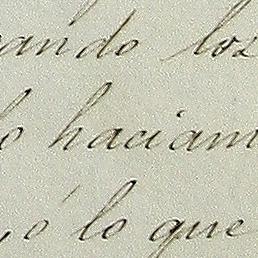 ando los
lo haciam
ó lo que